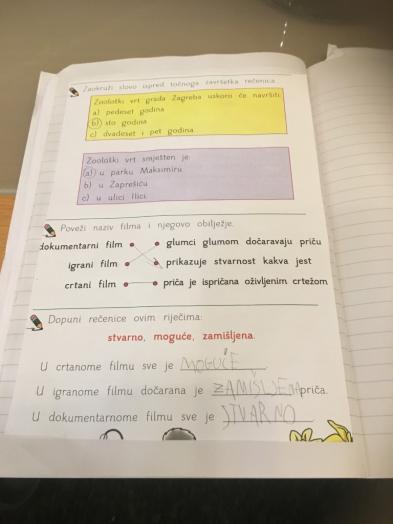 Zaokruži slovo ispred točnoga završetka rečenica.
Zoološki vrt grada Zagreba uskoro će navršiti:
a) pedeset godina
b) sto godina
c) dvadeset i pet godina.
Zoološki vrt smješten je:
a) u parku Maksimiru
b) u Zaprešiću
c) u ulici Ilici.
Poveži naziv filma i njegovo obilježje.
dokumentarni film • • glumci glumom dočaravaju priču
igrani film • • prikazuje stvarnost kakva jest
crtani film • • priča je ispričana oživljenim crtežom
Dopuni rečenice ovim riječima:
stvarno, moguće, zamišljena.
U crtanome filmu sve je MOGUĆE.
U igranome filmu dočarana je ZAMIŠLJENA priča.
U dokumentarnome filmu sve je STVARNO.